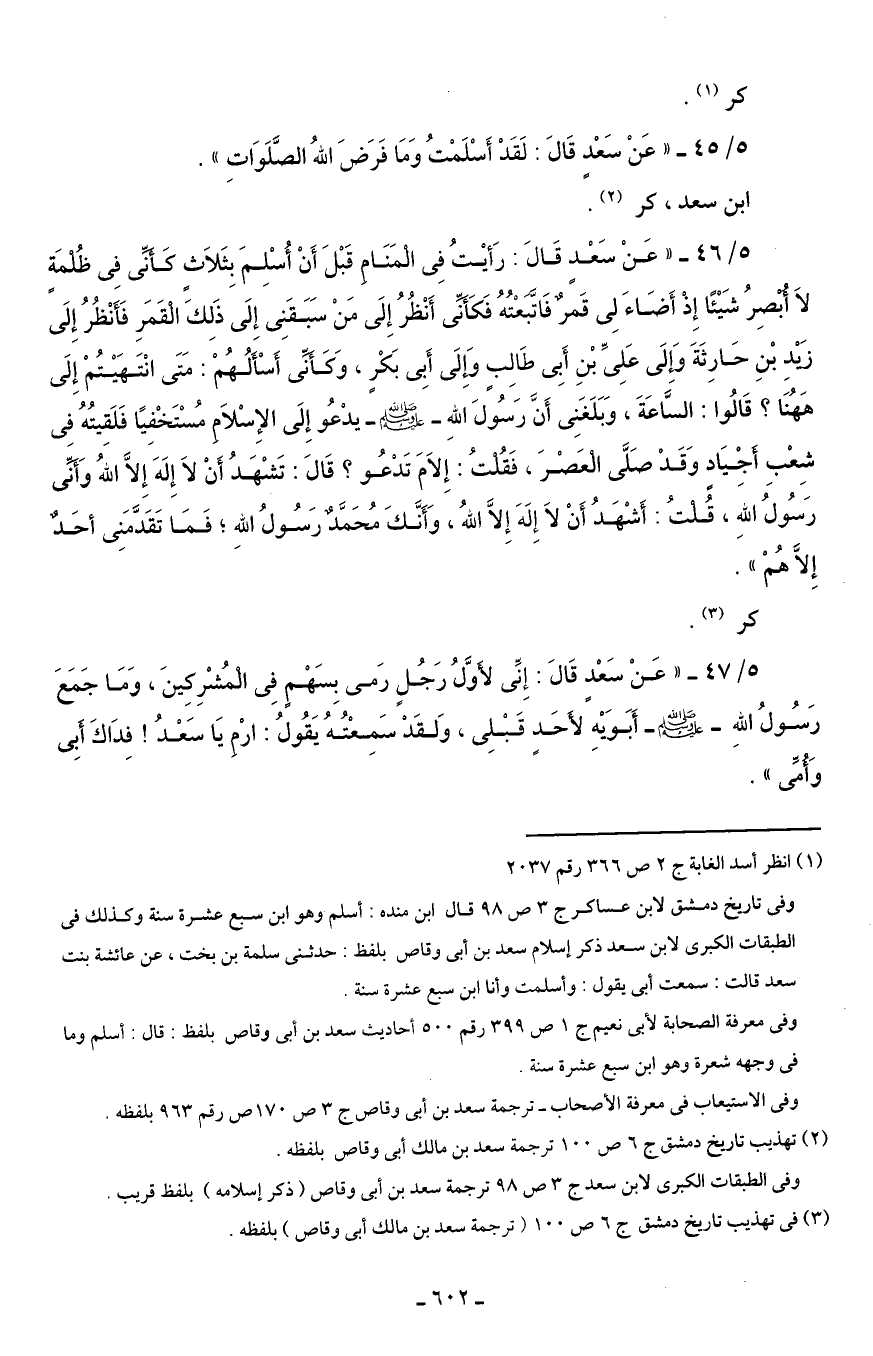 كر (١) .
٤٥/٥ ـ « عَنْ سَعْدٍ قَالَ : لَقَدْ أَسْلَمْتُ وَمَا فَرَضَ اللهُ الصَّلَوَاتِ » .
ابن سعد ، كر (٢) .
٤٦/٥ ـ « عَـنْ سَعْـدٍ قَـالَ : رَأَيْـتُ فِى الْمَنَـامِ قَبْلَ أَنْ أُسْلِـمَ بِثَلاَثٍ كَـأَنِّى فِى ظُلْمَةٍ
لاَ أُبْصِرُ شَيْئًا إِذْ أَضَـاءَ لِى قَمرٌ فَاتَّبَعْتُهُ فَكأَنِّى أَنْظُرُ إِلَى مَنْ سَبَـقَنِى إِلَى ذَلِكَ الْقَمَرِ فَأَنْظُرُ إِلَى
زَيْدِ بْنِ حَـارِثَةَ وَإِلَى عَلِىِّ بْنِ أَبِى طَالِبٍ وَإِلَى أَبِى بَكْرٍ ، وَكَـأَنِّى أَسْأَلُـهُمْ : مَتَى انْتَـهَيْـتُمْ إِلَى
هَهُنَا ؟ قَالُوا : السَّاعَةَ ، وَبَلَغَنِى أَنَّ رَسُولَ اللهِ ـ ﷺ ـ يدْعُو إِلَى الإِسْلاَمِ مُسْتَخْفِيًا فَلَقِيتُهُ فِى
شِعْبِ أَجْـيَادٍ وَقَـدْ صَلَّى الْعَصْـرَ ، فَقُلْتُ : إِلاَمَ تَدْعُـو ؟ قَالَ : تَشْهَـدُ أَنْ لاَ إِلَهَ إِلاَّ اللهُ وَأَنِّى
رَسُولُ اللهِ ، قُـلْتُ : أَشْهَـدُ أَنْ لاَ إِلَهَ إِلاَّ اللهُ ، وَأَنَّـكَ مُحَمَّدٌ رَسُـولُ اللهِ ؛ فَـمَـا تَقَدَّمَنِى أحَـدٌ
إِلاَّ هُمْ » .
كر (٣) .
٤٧/٥ ـ « عَـنْ سَعْدٍ قَالَ : إِنِّى لأَوَّلُ رَجُـلٍ رَمَـى بِسَهْـمٍ فِى الْمُشْرِكِينَ ، وَمَـا جَمَعَ
رَسُـولُ اللهِ ـ ﷺ ـ أَبَوَيْهِ لأَحَـدٍ قَـبْـلِى ، وَلَـقَدْ سَمِـعْتُـهُ يَقُولُ : ارْمِ يَا سَعْـدُ ! فِدَاكَ أَبِى
وَأُمِّى » .
(١) انظر أسد الغابة ج ٢ ص ٣٦٦ رقم ٢٠٣٧
وفى تاريخ دمشق لابن عساكر ج ٣ ص ٩٨ قال ابن منده : أسلم وهو ابن سبع عشرة سنة وكذلك فى
الطبقات الكبرى لابن سعد ذكر إسلام سعد بن أبى وقاص بلفظ : حدثنى سلمة بن بخت ، عن عائشة بنت
سعد قالت : سمعت أبى يقول : وأسلمت وأنا ابن سبع عشرة سنة .
وفى معرفة الصحابة لأبى نعيم ج ١ ص ٣٩٩ رقم ٥٠٠ أحاديث سعد بن أبى وقاص بلفظ : قال : أسلم وما
فى وجهه شعرة وهو ابن سبع عشرة سنة .
وفى الاستيعاب فى معرفة الأصحاب ـ ترجمة سعد بن أبى وقاص ج ٣ ص ١٧٠ ص رقم ٩٦٣ بلفظه .
(٢) تهذيب تاريخ دمشق ج ٦ ص ١٠٠ ترجمة سعد بن مالك أبى وقاص بلفظه .
وفى الطبقات الكبرى لابن سعد ج ٣ ص ٩٨ ترجمة سعد بن أبى وقاص ( ذكر إسلامه ) بلفظ قريب .
(٣) فى تهذيب تاريخ دمشق ج ٦ ص ١٠٠ ( ترجمة سعد بن مالك أبى وقاص ) بلفظه .
ـ ٦٠٢ ـ